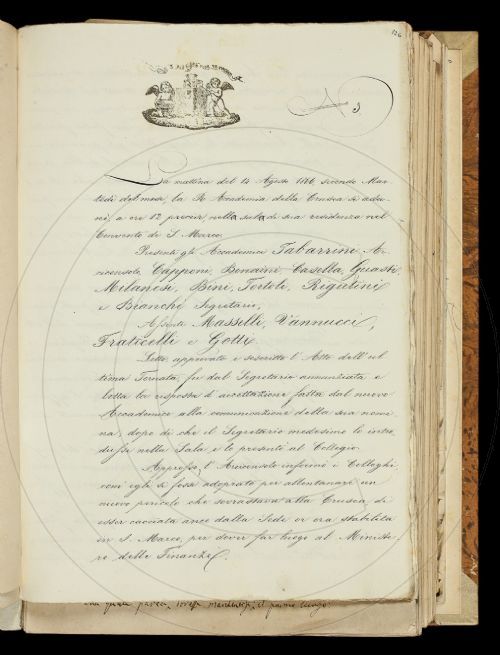 126
La mattina del 14 Agosto 1866 secondo Mar-
tedì del mese, la R. Accademia della Crusca si adu-
nò, a ore 12 precise, nella sala di sua residenza nel
Convento di S. Marco.
Presenti gli Accademici Tabarrini Ar-
ciconsolo, Capponi, Bonaini, Casella, Guasti,
Milanesi, Bini, Tortoli, Rigutini
e Bianchi Segretario,
Assenti Masselli, Vannucci,
Fraticelli e Gotti.
Letto approvato e inserito l'Atto dell'ul-
tima Tornata, fu dal Segretario annunziata e
letta la risposta di accettazione fatta dal nuovo
Accademico alla comunicazione della sua nomi-
na, dopo di che il Segretario medesimo lo intro-
dusse nella Sala e lo presentò al Collegio.
Appresso, l'Arciconsolo informò i Colleghi
com'egli si fosse adoprato per allontanare un
nuovo pericolo che sovrastava alla Crusca, di
esser cacciata anco dalla Sede or ora stabilita
in S. Marco, per dover far luogo al Ministe-
ro delle Finanze.
il primo luogo